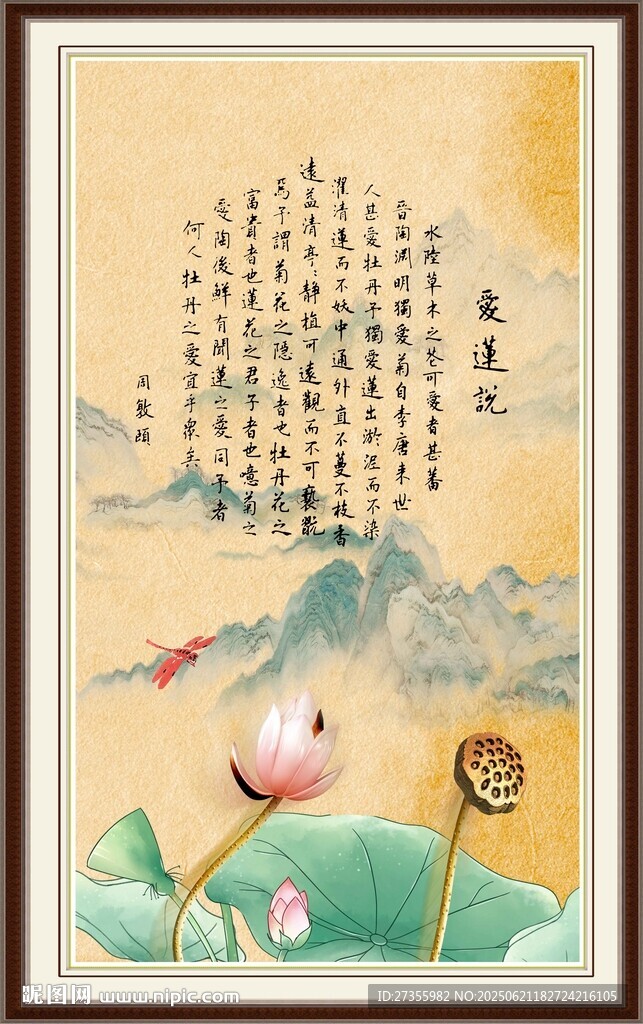 愛蓮說
水陸草木之花可愛者甚蕃
晉陶淵明獨愛菊自李唐来世
人甚愛牡丹予獨愛蓮出淤泥而不染
濯清蓮而不妖中通外直不蔓不枝香
遠益清亭〻静植可遠觀而不可褻翫
焉予謂菊花之隱逸者也牡丹花之
富貴者也蓮花之君子者也噫菊之
愛陶後鮮有聞蓮之愛同予者
何人牡丹之愛宜乎衆矣
周敦頤
昵图网 www.nipic.com
ID:27355982 NO:20250621182724216105